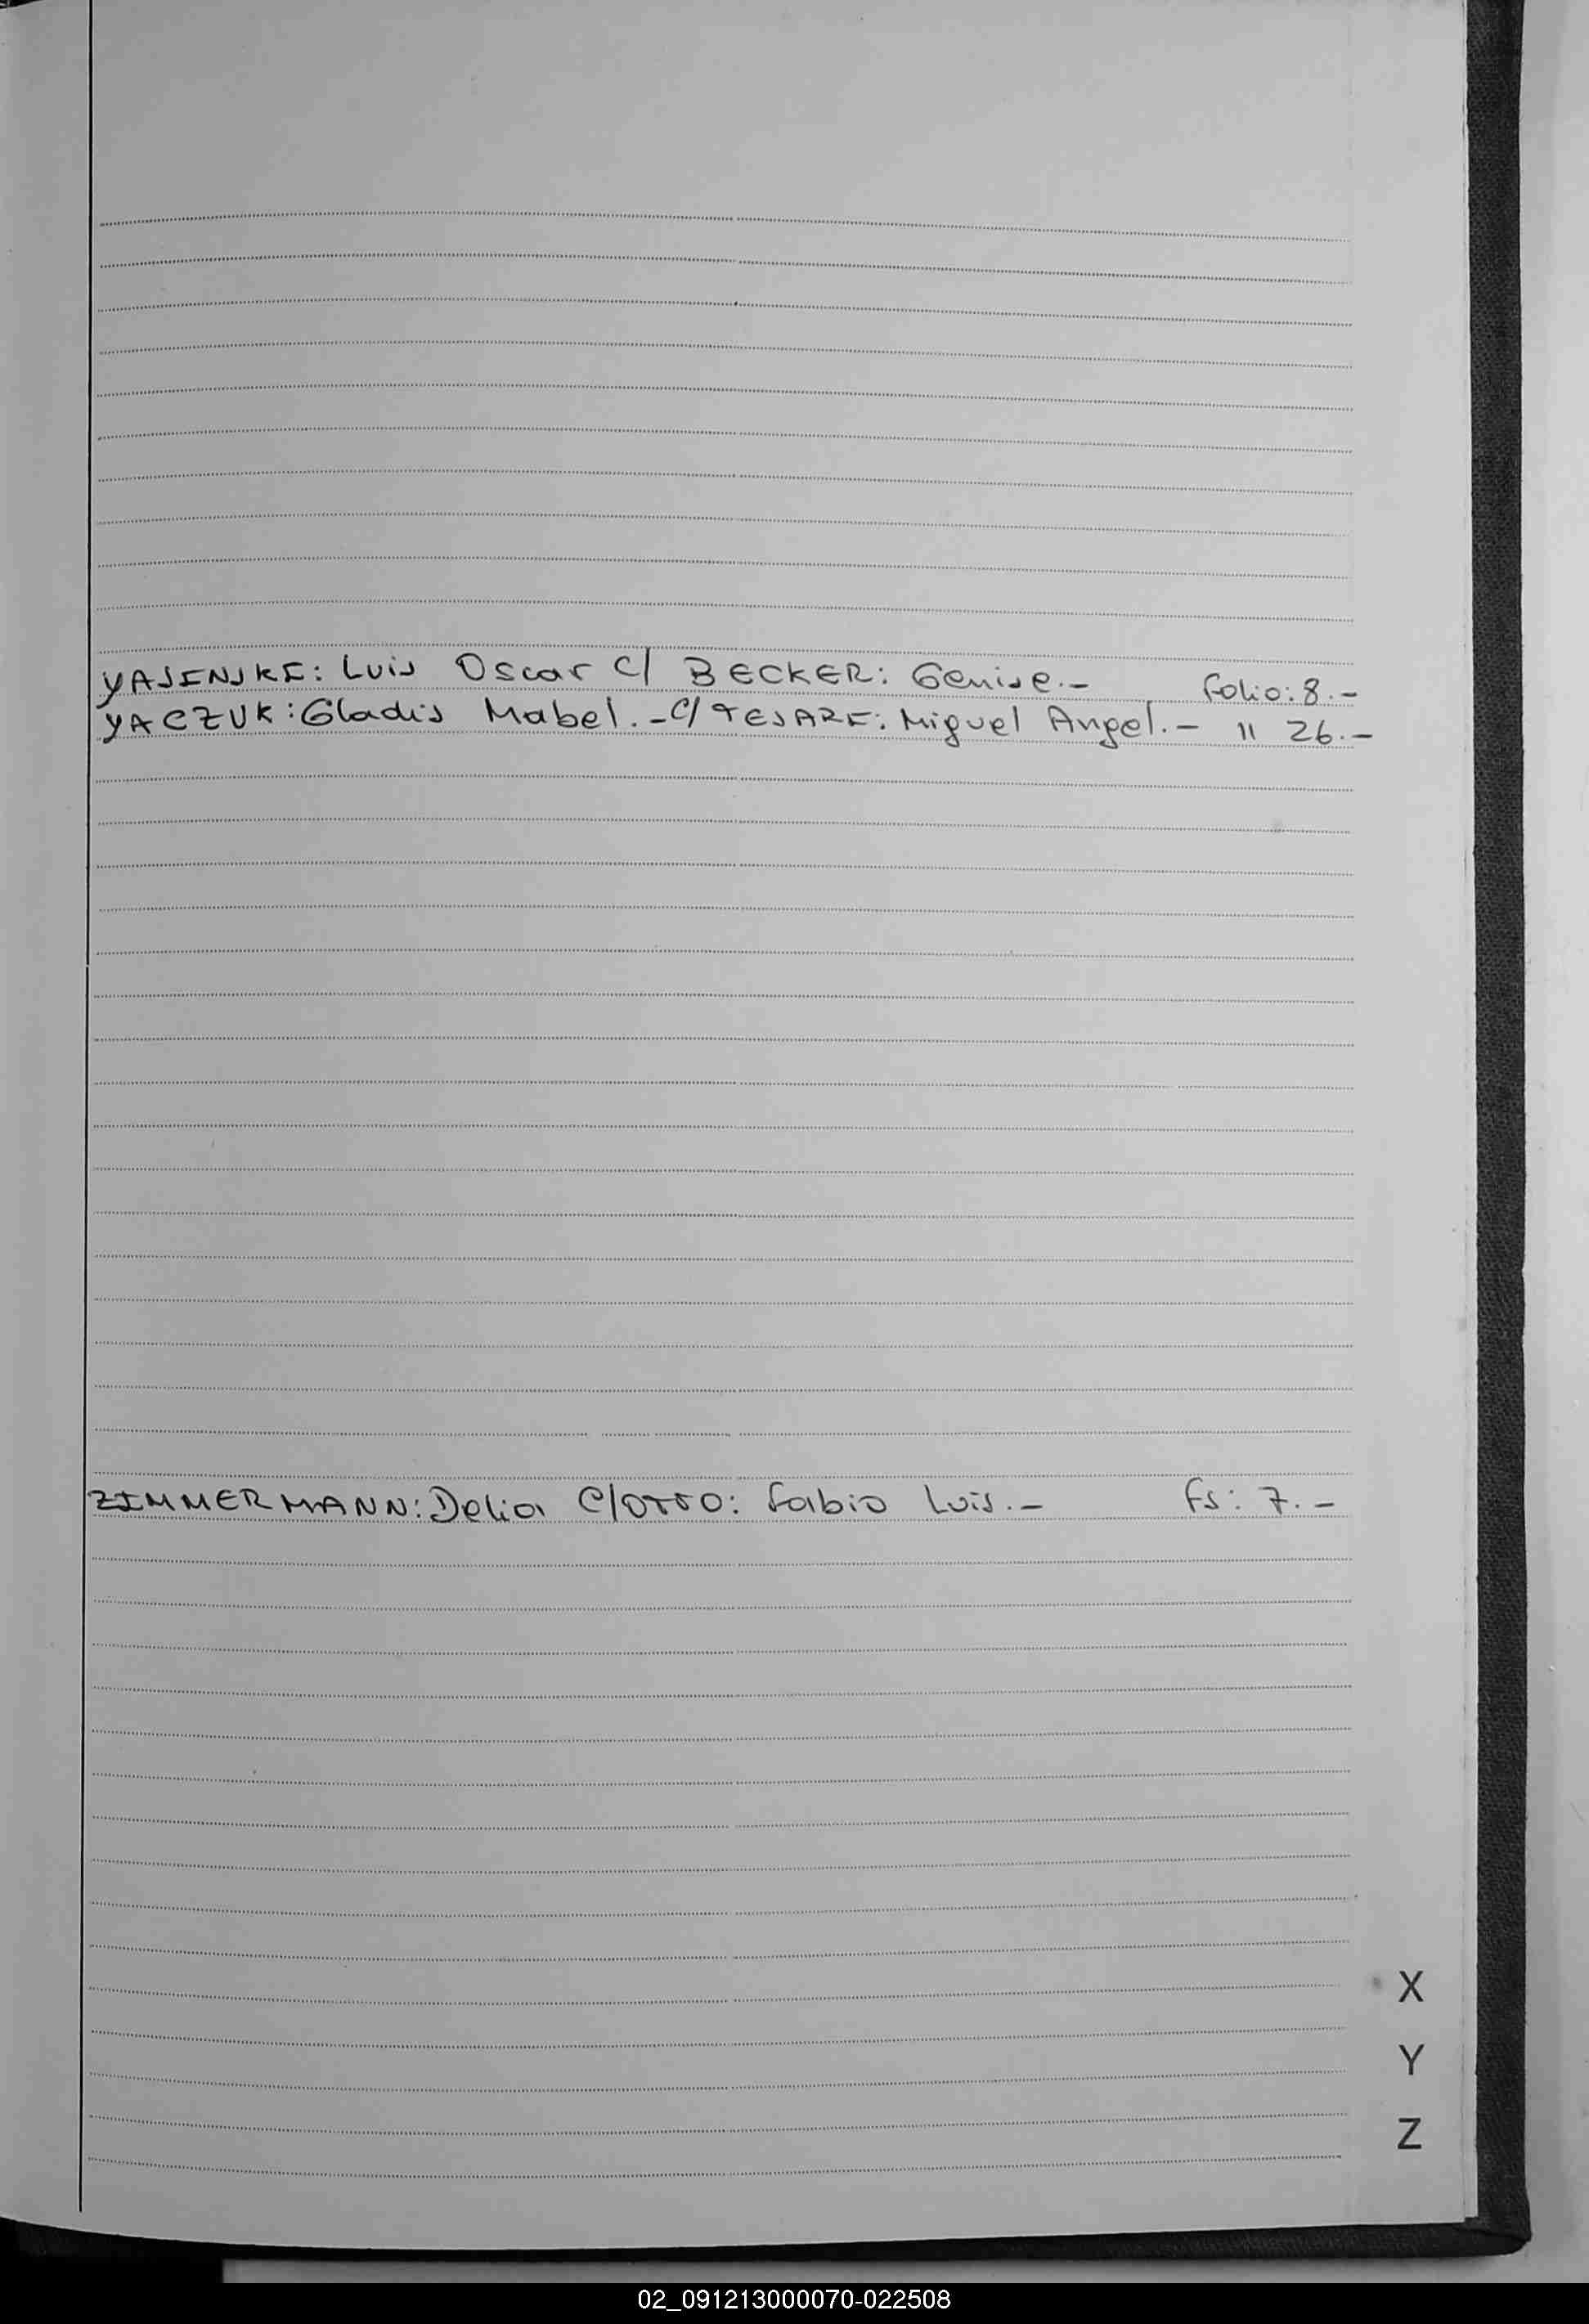 YASINSKI: Luis Oscar C/ BECKER: Genise.- Folio: 8.-
YACZUK: Gladis Mabel.- C/ TESARI: Miguel Angel.- " 26.-
ZIMMERMANN: Delia C/ OTTO: Fabio Luis.- Fs: 7.-
X
Y
Z
02_091213000070-022508